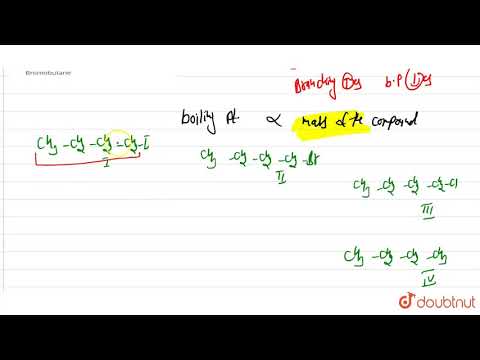 Bromobutane
Branching ↑es b.p (↓)es
boiling pt. ∝ mass of the compound
CH3 -CH2 -CH2 -CH2-I
I
CH3 -CH2 -CH2 -CH2-Br
II
CH3 -CH2 -CH2 -CH2-Cl
III
CH3 -CH2 -CH2 -CH3
IV
doubtnut